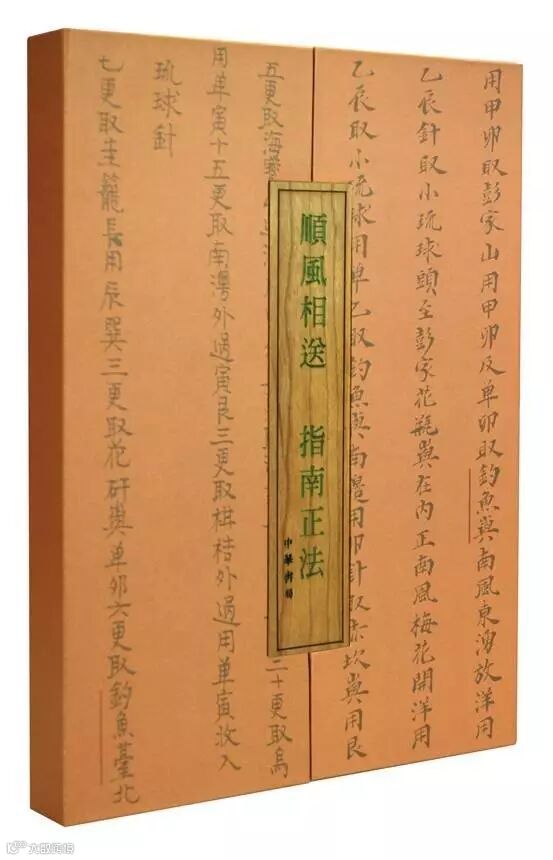 用甲卯取彭家山用甲卯及单卯取钓魚嶼南風東湧放洋用
乙辰針取小琉球頭至彭家花瓶嶼在内正南風梅花開洋用
乙辰取小琉球用单乙取钓魚嶼南邊用卯針取赤坎嶼用艮
順風相送 指南正法
中華書局
五更取海
二十更取烏
用单寅十五更取南灣外過寅艮三更取枯桔外過用单寅收入
琉球針
七更取圭籠長用辰巽三更取花矸嶼单卯六更取钓魚臺北
大取正投